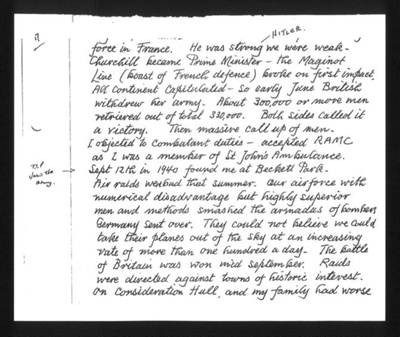 HITLER.
force in France. He was strong we were weak -
Churchill became Prime Minister - the Maginot
Line (boast of French defence) broke on first impact.
All Continent Capitulated - so early June British
withdrew her army. About 300,000 or more men
retrieved out of total 320,000. Both sides called it
a victory. Then massive call up of men.
I objected to combatant duties - accepted RAMC
as I was a member of St John's Ambulance.
Sept 12th in 1940 found me at Beckett Park.
Air raids worsened that summer. Our airforce with
numerical disadvantage but highly superior
men and methods smashed the armadas of bombers
Germany sent over. They could not believe we could
take their planes out of the sky at an increasing
rate of more than one hundred a day. The battle
of Britain was won mid september. Raids
were directed against towns of historic interest.
On Consideration Hull, and my family had worse
joins the
army.